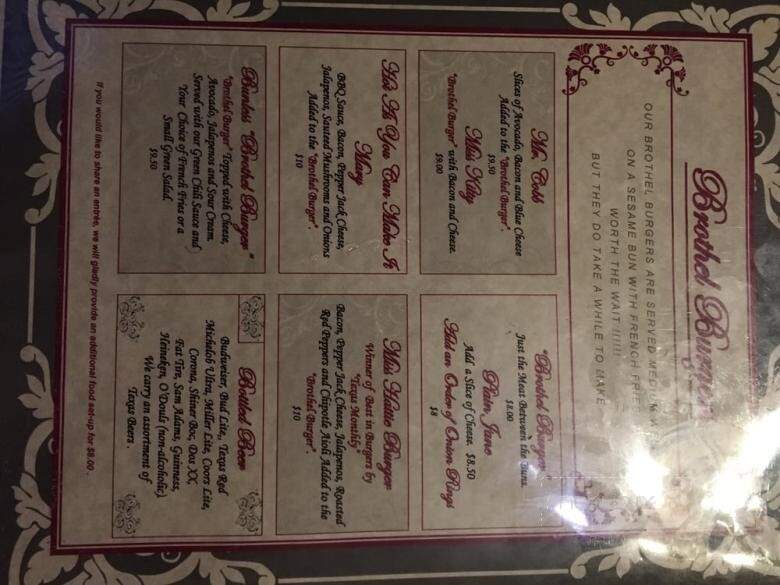 Brothel Burgers
OUR BROTHEL BURGERS ARE SERVED MEDIUM
ON A SESAME BUN WITH FRENCH FRIES
WORTH THE WAIT !!!!!
BUT THEY DO TAKE A WHILE TO MAKE
Mr. Cobb
Slices of Avocado, Bacon and Blue Cheese
Added to the "Brothel Burger".
$9.50
Miss Kitty
"Brothel Burger" with Bacon and Cheese.
$9.00
"Brothel Burger"
Just the Meat Between the Buns.
$8.00
Plain Jane
Add a Slice of Cheese. $8.50
Add an Order of Onion Rings
$8
Hot As You Can Make It
Mary
BBQ Sauce, Bacon, Pepper Jack Cheese,
Jalapenos, Sauteed Mushrooms and Onions
Added to the "Brothel Burger".
$10
Miss Hattie Burger
Winner of Best in Burgers by
"Texas Monthly"
Bacon, Pepper Jack Cheese, Jalapenos, Roasted
Red Peppers and Chipotle Aioli Added to the
"Brothel Burger".
$10
Bunless "Brothel Burger"
"Brothel Burger" Topped with Cheese,
Avocado, Jalapenos and Sour Cream.
Served with our Green Chili Sauce and
Your Choice of French Fries or a
Small Green Salad.
$9.50
Bottled Beer
Budweiser, Bud Lite,, Texas Red
Michelob Ultra, Miller Lite, Coors Lite,
Corona, Shiner Boc, Dos XX,
Fat Tire, Sam Adams, Guinness,
Heineken, O'Douls (non-alcoholic)
We carry an assortment of
Texas Beers.
If you would like to share an entrée, we will gladly provide an additional food set-up for $8.00.